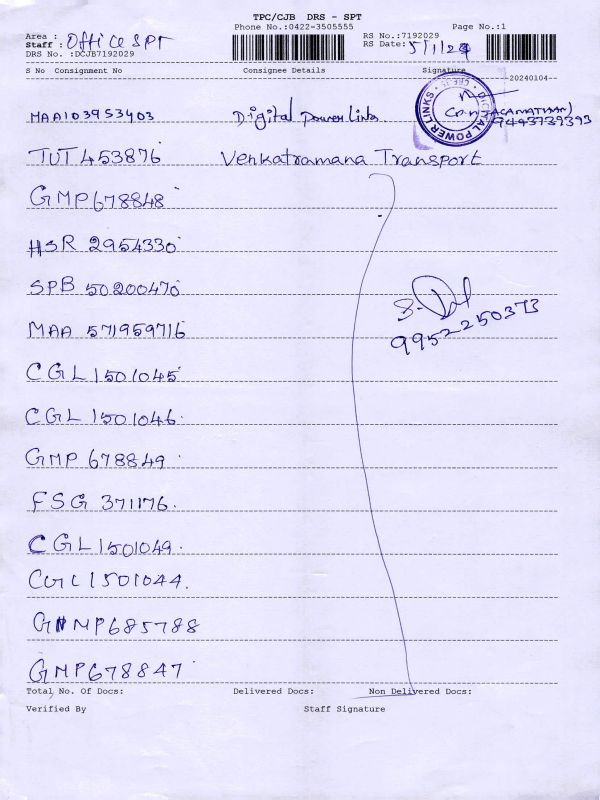 TPC/CJB DRS - SPT
Phone No.:0422-3505555 Page No.:1
Area :
Staff : Office SPT
DRS No. :DCJB7192029
RS No.:7192029
RS Date: 5/1/24
S No Consignment No Consignee Details Signature
20240104
MAA103953403 Digital Power Links
DIGITAL POWER LINKS CBE
9443739393
TUT 453876 Venkatramana Transport
GMP678848
HSR 2954330
SPB 50200470
MAA 571959716
9952250373
CGL1501045
CGL1501046
GMP 678849
FSG 371176
CGL1501049
CGL1501044
GMP685788
GMP678847
Total No. Of Docs: Delivered Docs: Non Delivered Docs:
Verified By Staff Signature